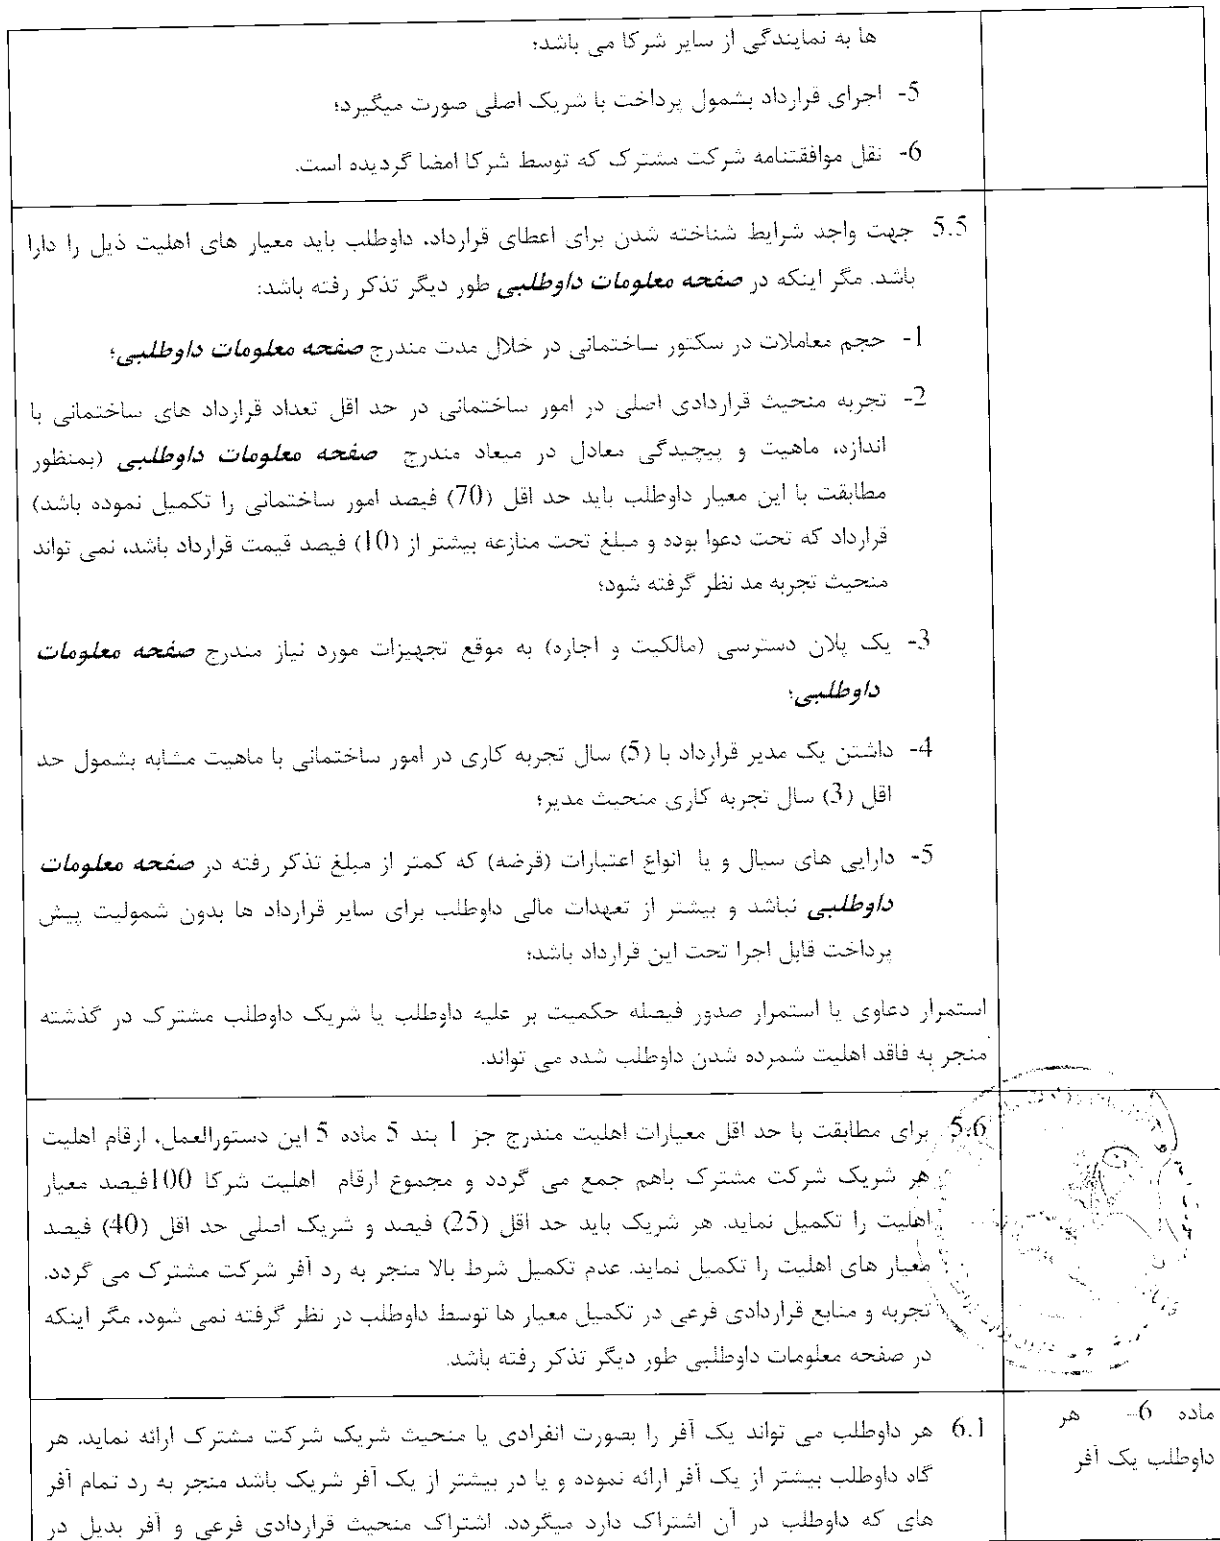 ها به نمایندگی از سایر شرکا می باشد؛
5- اجرای قرارداد بشمول پرداخت با شریک اصلی صورت میگیرد؛
6- نقل موافقتنامه شرکت مشترک که توسط شرکا امضا گردیده است.
5.5 جهت واجد شرایط شناخته شدن برای اعطای قرارداد، داوطلب باید معیار های اهلیت ذیل را دارا
باشد. مگر اینکه در صفحه معلومات داوطلبی طور دیگر تذکر رفته باشد:
1- حجم معاملات در سکتور ساختمانی در خلال مدت مندرج صفحه معلومات داوطلبی؛
2- تجربه منحیث قراردادی اصلی در امور ساختمانی در حد اقل تعداد قرارداد های ساختمانی با
اندازه، ماهیت و پیچیدگی معادل در میعاد مندرج صفحه معلومات داوطلبی (بمنظور
مطابقت با این معیار داوطلب باید حد اقل (70) فیصد امور ساختمانی را تکمیل نموده باشد)
قرارداد که تحت دعوا بوده و مبلغ تحت منازعه بیشتر از (10) فیصد قیمت قرارداد باشد، نمی تواند
منحیث تجربه مد نظر گرفته شود؛
3- یک پلان دسترسی (مالکیت و اجاره) به موقع تجهیزات مورد نیاز مندرج صفحه معلومات
داوطلبی؛
4- داشتن یک مدیر قرارداد با (5) سال تجربه کاری در امور ساختمانی با ماهیت مشابه بشمول حد
اقل (3) سال تجربه کاری منحیث مدیر؛
5- دارایی های سیال و یا انواع اعتبارات (قرضه) که کمتر از مبلغ تذکر رفته در صفحه معلومات
داوطلبی نباشد و بیشتر از تعهدات مالی داوطلب برای سایر قرارداد ها بدون شمولیت پیش
پرداخت قابل اجرا تحت این قرارداد باشد؛
استمرار دعاوی یا استمرار صدور فیصله حکمیت بر علیه داوطلب یا شریک داوطلب مشترک در گذشته
منجر به فاقد اهلیت شمرده شدن داوطلب شده می تواند.
5.6 برای مطابقت با حد اقل معیارات اهلیت مندرج جز 1 بند 5 ماده 5 این دستورالعمل، ارقام اهلیت
هر شریک شرکت مشترک باهم جمع می گردد و مجموع ارقام اهلیت شرکا 100فیصد معیار
اهلیت را تکمیل نماید. هر شریک باید حد اقل (25) فیصد و شریک اصلی حد اقل (40) فیصد
معیار های اهلیت را تکمیل نماید. عدم تکمیل شرط بالا منجر به رد آفر شرکت مشترک می گردد.
تجربه و منابع قراردادی فرعی در تکمیل معیار ها توسط داوطلب در نظر گرفته نمی شود. مگر اینکه
در صفحه معلومات داوطلبی طور دیگر تذکر رفته باشد.
ماده 6- هر
داوطلب یک آفر
6.1 هر داوطلب می تواند یک آفر را بصورت انفرادی یا منحیث شریک شرکت مشترک ارائه نماید. هر
گاه داوطلب بیشتر از یک آفر ارائه نموده و یا در بیشتر از یک آفر شریک باشد منجر به رد تمام آفر
های که داوطلب در آن اشتراک دارد میگردد. اشتراک منحیث قراردادی فرعی و آفر بدیل در